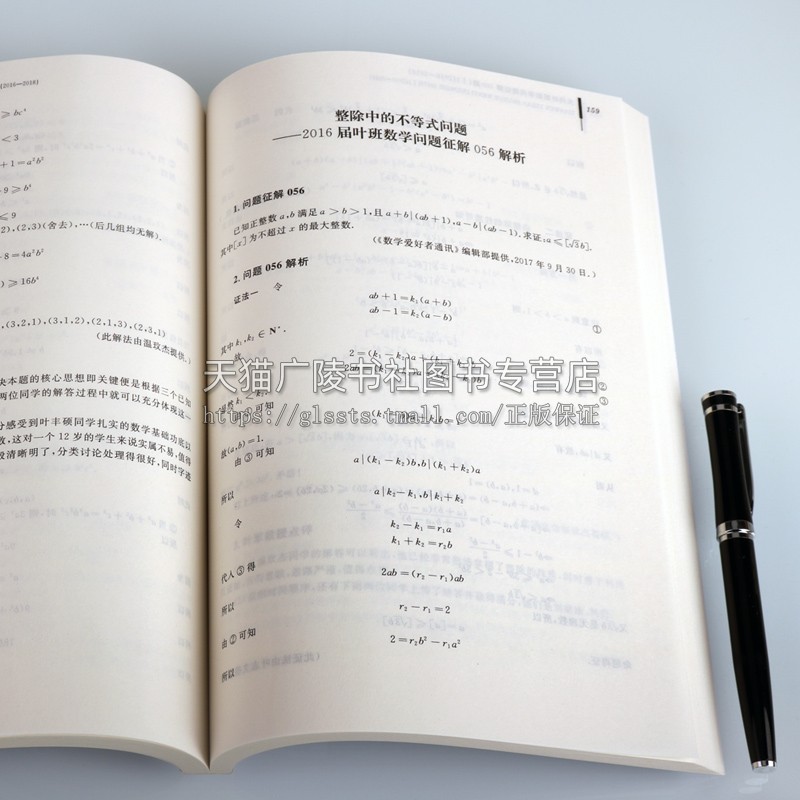 (2016—2018)
≥bc⁴
<3
+1=a²b²
-9≥b⁴
≤9
2),(2,3)(舍去),…(后几组均无解).
-8=4a²b²
)≥16b⁴
,(3,2,1),(3,1,2),(2,1,3),(2,3,1)
(此解法由温玟杰提供.)
决本题的核心思想即关键便是根据三个已知
两位同学的解答过程中就可以充分体现这一
分感受到叶丰硕同学扎实的数学基础功底以
放,这对一个 12 岁的学生来说实属不易,值得
段清晰明了,分类讨论处理得很好,同时字迹
159
整除中的不等式问题
——2016 届叶班数学问题征解 056 解析
1. 问题征解 056
已知正整数 a,b 满足 a>b>1,且 a+b|(ab+1),a-b|(ab-1).求证:a≤[√3b].
其中[x]为不超过 x 的最大整数.
(《数学爱好者通讯》编辑部提供,2017 年 9 月 30 日.)
2. 问题 056 解析
证法一 令
ab+1=k₁(a+b)
ab-1=k₂(a-b)
①
其中 k₁,k₂∈N*.
2=(k₁-k₂)a+
②
③
天猫广陵书社图书专营店
https://glssts.tmall.com/正版保证
可知
故(a,b)=1.
由③可知
a|(k₁-k₂)b,b|(k₁+k₂)a
所以
a|k₂-k₁,b|k₁+k₂
令
k₂-k₁=r₁a
k₁+k₂=r₂b
代入③得
2ab=(r₂-r₁)ab
所以
r₂-r₁=2
由②可知
2=r₂b²-r₁a²
所以